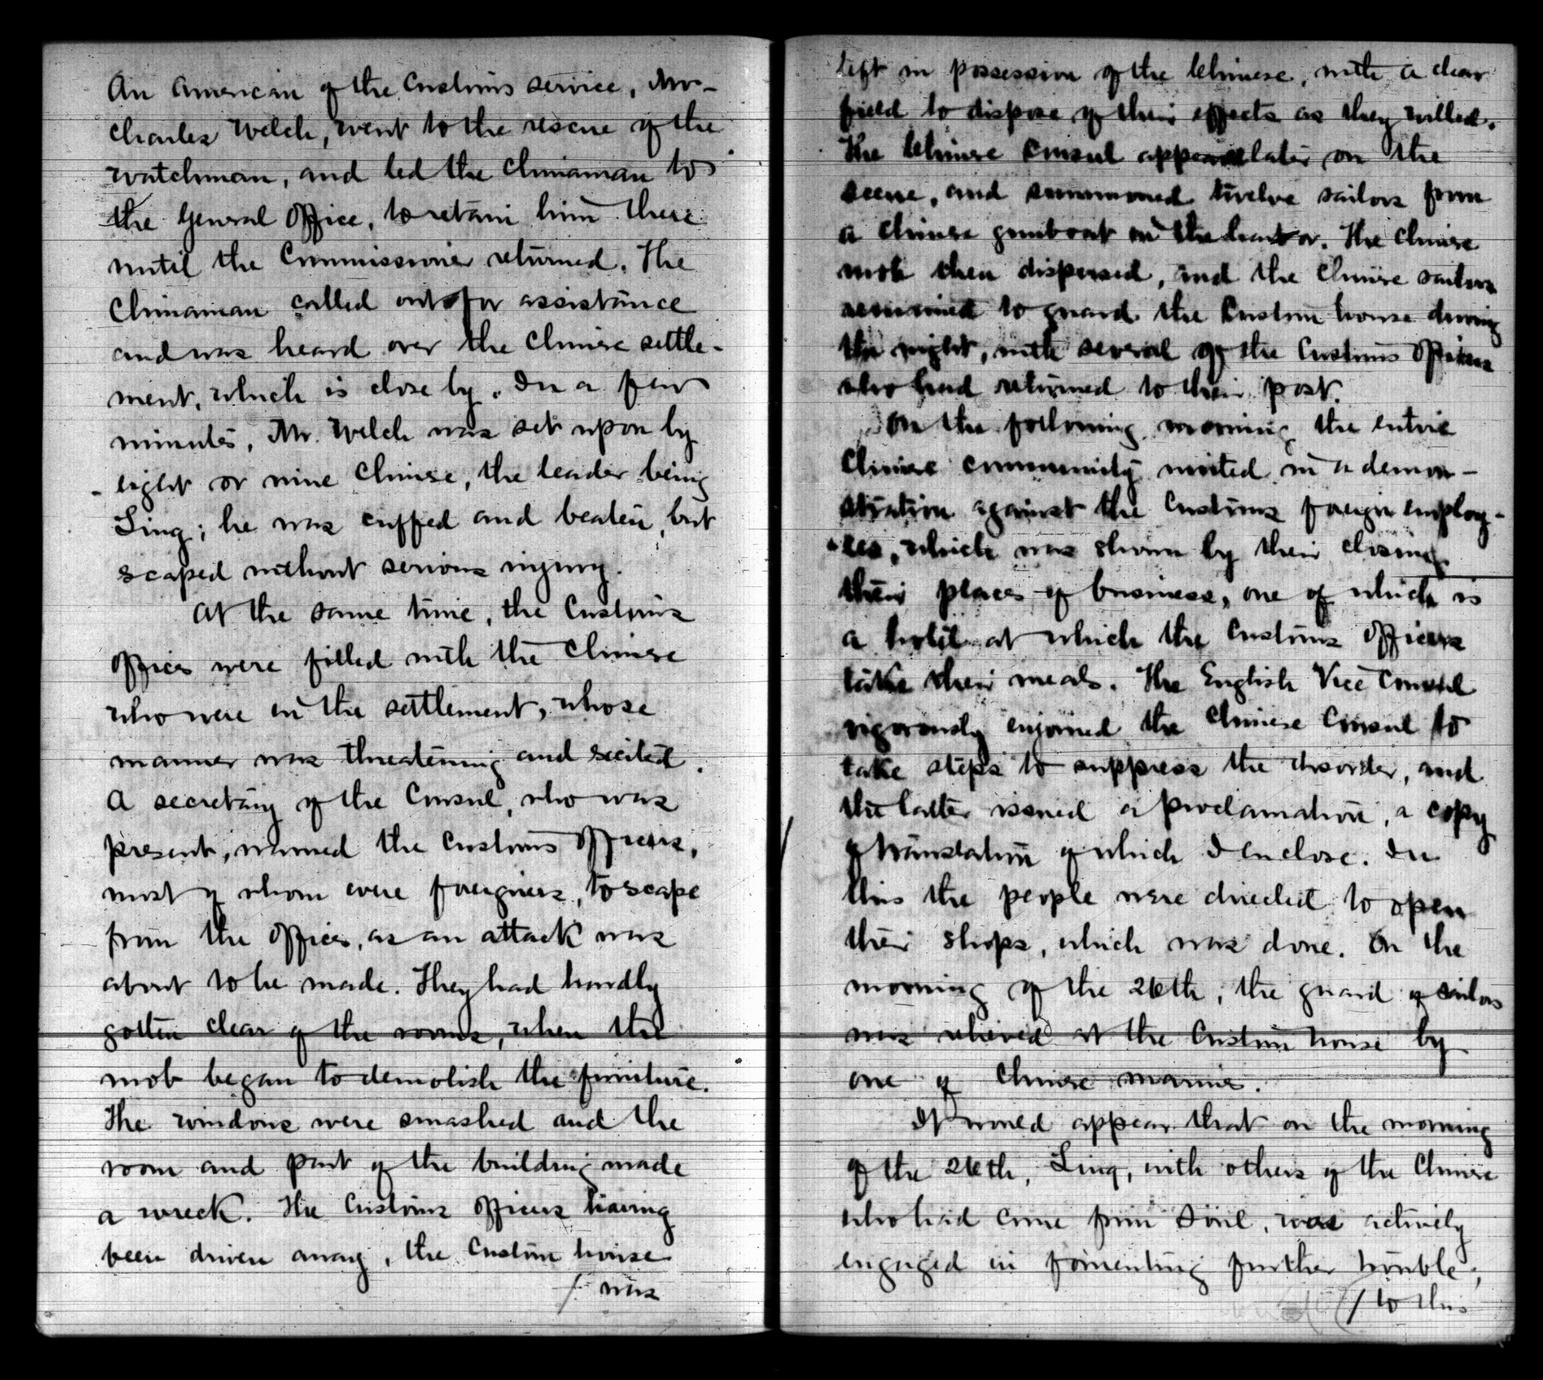 An American of the Customs service, Mr.
Charles Welch, went to the rescue of the
watchman, and led the Chinaman to
the General Office, to retain him there
until the Commissioner returned. The
Chinaman called out for assistance
and was heard over the Chinese settle-
ment, which is close by. In a few
minutes, Mr. Welch was set upon by
eight or nine Chinese, the leader being
Ling; he was cuffed and beaten, but
scaped without serious injury.
At the same time, the Customs
offices were filled with the Chinese
who were in the settlement, whose
manner was threatening and excited.
A secretary of the Consul, who was
present, warned the Customs Officers,
most of whom were foreigners, to scape
from the offices, as an attack was
about to be made. They had hardly
gotten clear of the rooms, when the
mob began to demolish the furniture.
The windows were smashed and the
room and part of the building made
a wreck. The Customs Officers having
been driven away, the Custom house
/ was
left in possession of the Chinese, with a clear
field to dispose of their effects as they willed.
The Chinese Consul appeared later on the
scene, and summoned twelve sailors from
a Chinese gunboat in the harbor. The Chinese
mob then dispersed, and the Chinese sailors
remained to guard the Custom house during
the night, with several of the Customs Officers
who had returned to their post.
On the following morning the entire
Chinese community united in a demon-
stration against the Customs foreign employ-
ees, which was shown by their closing
their places of business, one of which is
a hotel at which the Customs Officers
take their meals. The English Vice Consul
vigorously enjoined the Chinese Consul to
take steps to suppress the disorder, and
the latter issued a proclamation, a copy
of translation of which I enclose. In
this the people were directed to open
their shops, which was done. On the
morning of the 26th, the guard of sailors
was relieved at the Custom house by
one of Chinese marines.
It would appear that on the morning
of the 26th, Ling, with others of the Chinese
who had come from Söul, was actively
engaged in fomenting further trouble;
/ to this